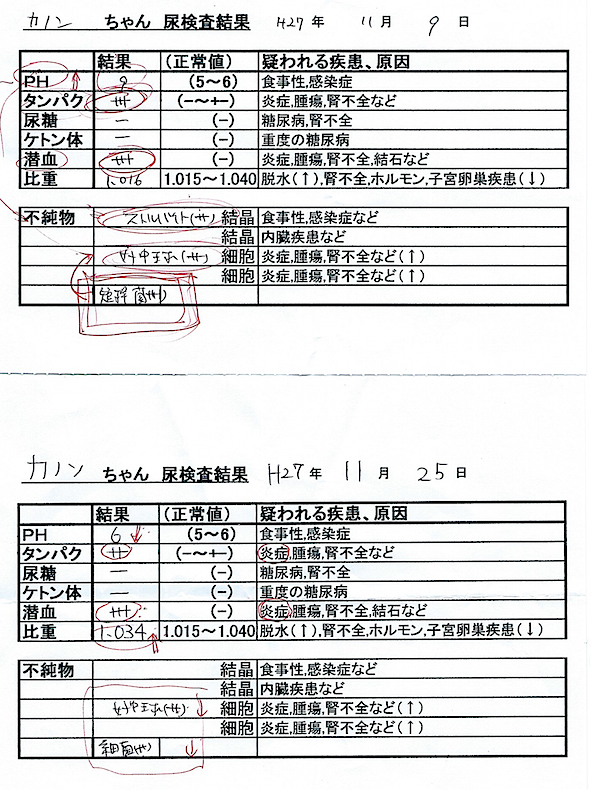 カノン ちゃん 尿検査結果 H27 年 11 月 9 日
結果 (正常値) 疑われる疾患、原因
PH 9 (5~6) 食事性,感染症
タンパク +++ (-~+-) 炎症,腫瘍,腎不全など
尿糖 - (-) 糖尿病,腎不全
ケトン体 - (-) 重度の糖尿病
潜血 +++ (-) 炎症,腫瘍,腎不全,結石など
比重 1.016 1.015~1.040 脱水(↑),腎不全,ホルモン,子宮卵巣疾患(↓)
不純物 ストルバイト(++) 結晶 食事性,感染症など
結晶 内臓疾患など
好中球(++) 細胞 炎症,腫瘍,腎不全など(↑)
細胞 炎症,腫瘍,腎不全など(↑)
カノン ちゃん 尿検査結果 H27 年 11 月 25 日
結果 (正常値) 疑われる疾患、原因
PH 6 ↓ (5~6) 食事性,感染症
タンパク ++ (-~+-) 炎症,腫瘍,腎不全など
尿糖 - (-) 糖尿病,腎不全
ケトン体 - (-) 重度の糖尿病
潜血 +++ (-) 炎症,腫瘍,腎不全,結石など
比重 1.034 ↑ 1.015~1.040 脱水(↑),腎不全,ホルモン,子宮卵巣疾患(↓)
不純物 結晶 食事性,感染症など
結晶 内臓疾患など
好中球(++) ↓ 細胞 炎症,腫瘍,腎不全など(↑)
細胞 炎症,腫瘍,腎不全など(↑)
細菌(++) ↓